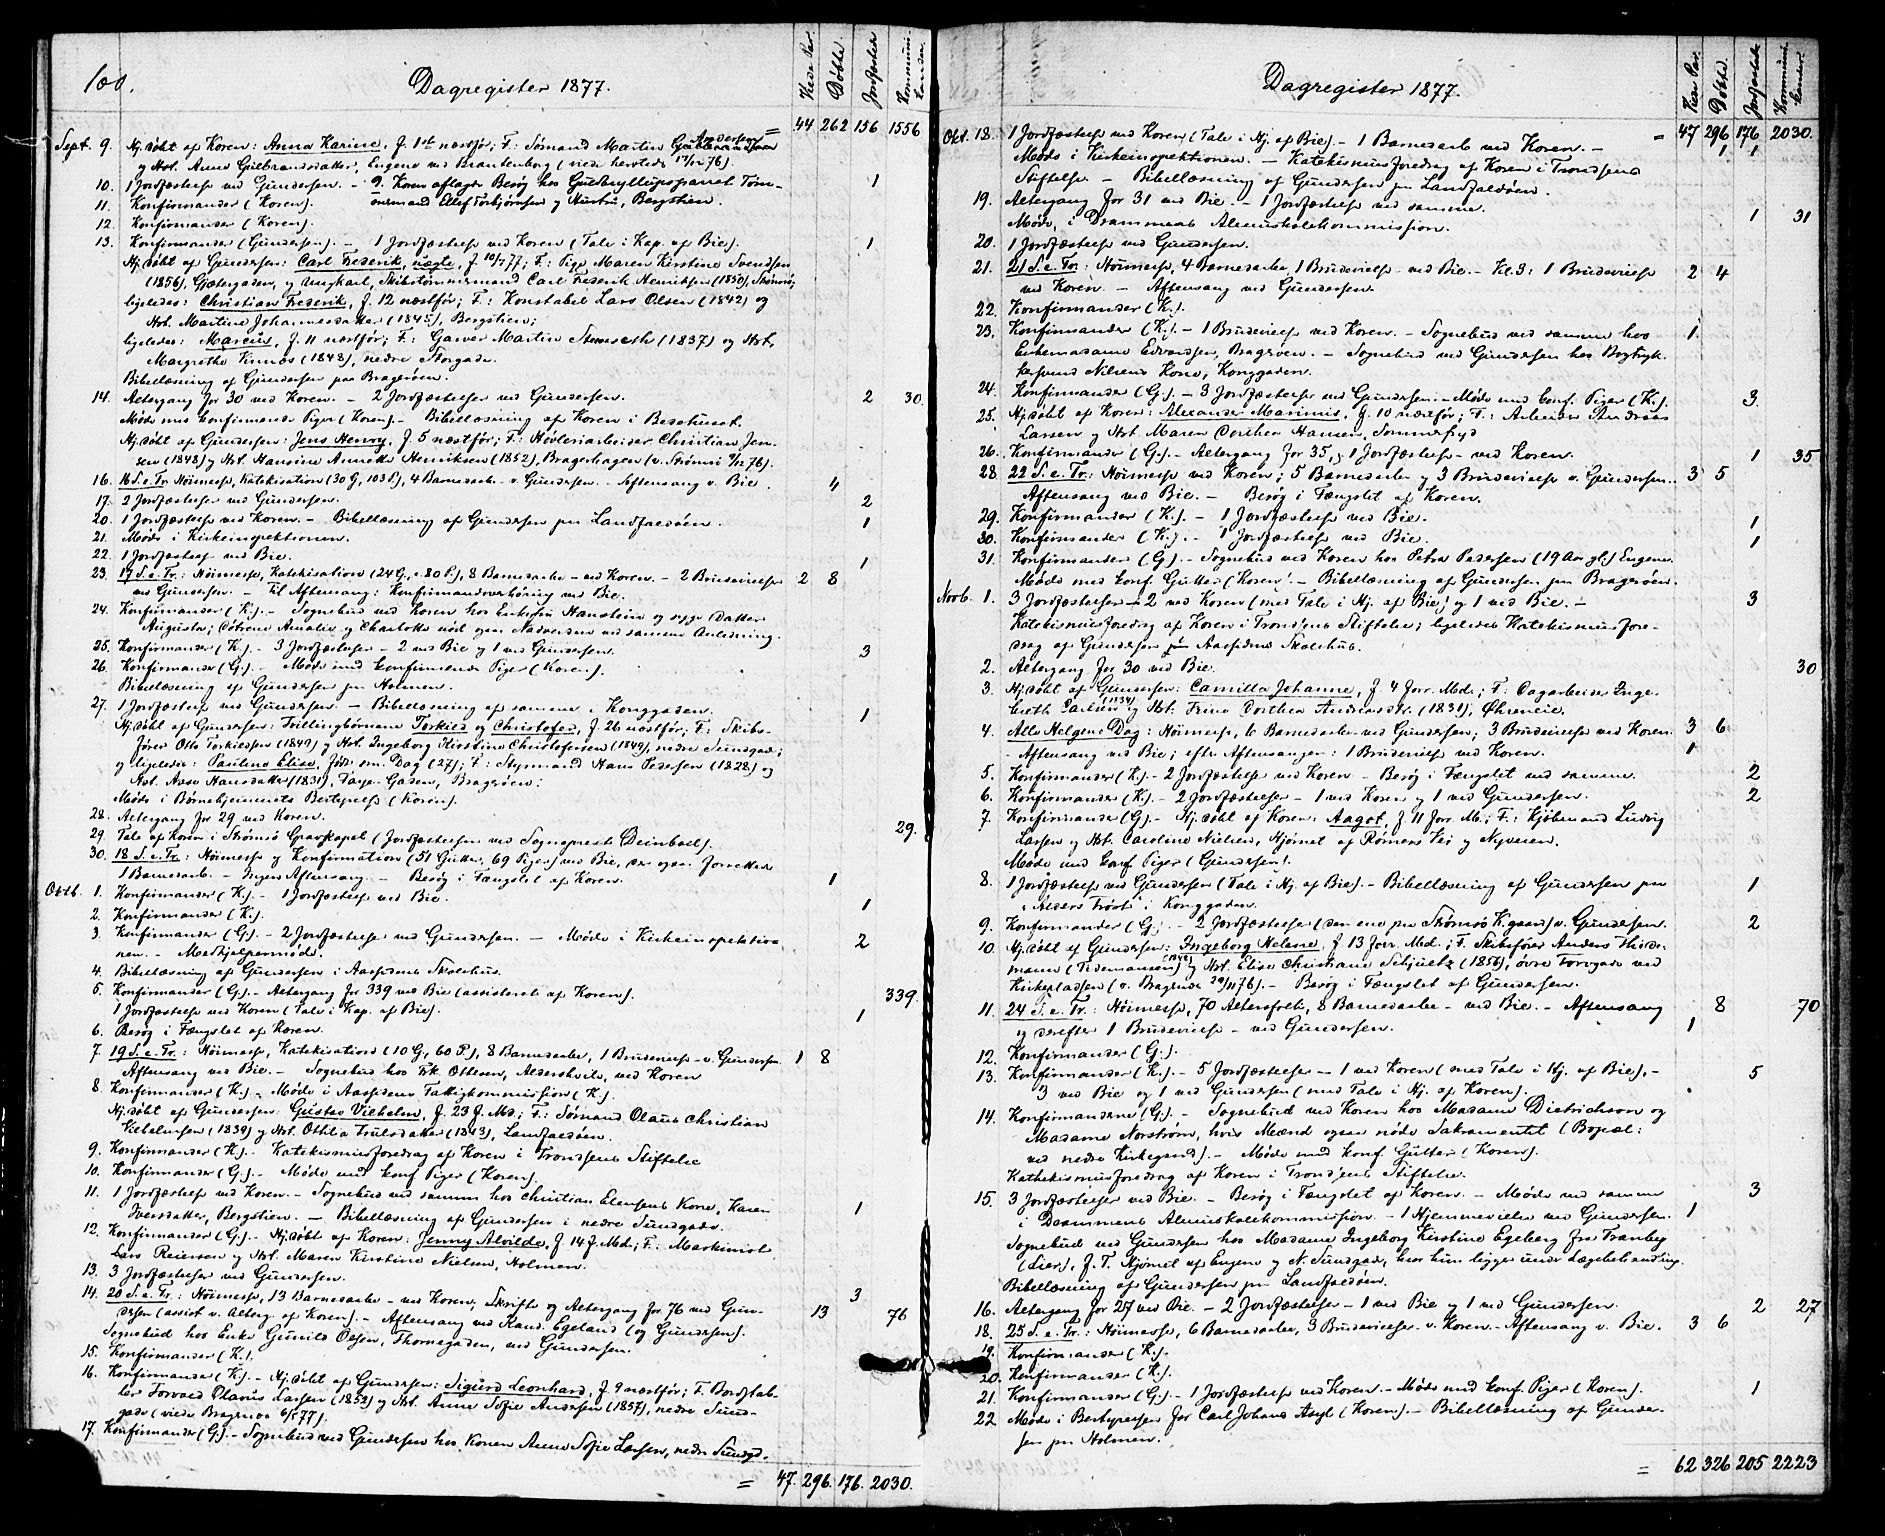 100.
Dagregister 1877.
Viede Par. Døbte. Jordfæstede Kommunicanter.
= 44 262 156 1556
Sept. 9. Hj.døbt af Koren: Anna Karine, f. 1ste næstfør; F: Sømand Martin Andersen
og Hst. Anne Gulbrandsdatter, Engene ved Brantenborg (viede hersteds 17/12 76).
10. 1 Jordfæstelse ved Gundersen. – 9. Koren aflagde Besøg hos Guldbryllupsparret Tøm- 1
11. Konfirmander (Koren). mermand Ellef Torbjørnsen og Hustru, Bergstien.
12. Konfirmander (Koren).
13. Konfirmander (Gundersen). – 1 Jordfæstelse ved Koren (Tale i Kap. af Bie). 1
Hj.døbt af Gundersen: Carl Frederik, uægte, f. 10/7 77; F: Pige Maren Kirstine Svendsen
(1856), Gjetergaden, og Ungkarl, Skibstømmermand Carl Frederik Henriksen (1850), Strømsø;
ligeledes: Christian Frederik, f. 12 næstfør; F: Konstabel Lars Olsen (1842) og
Hst. Martine Johannesdatter (1845), Bergstien;
ligeledes: Marcus, f. 11 næstfør; F: Garver Martin (1837) og Hst.
Margrethe (1848), nedre Storgade.
Bibellæsning af Gundersen paa Bragerøen.
14. Altergang for 30 ved Koren. – 2 Jordfæstelser ved Gundersen. 2 30.
Møde med konfirmerede Piger (Koren). – Bibellæsning af Koren i Bedehuset.
Hj.døbt af Gundersen: Jens Henry, f. 5 næstfør; F: Høvleriarbeider Christian Jen-
sen (1848) og Hst. Hansine Annette Henriksen (1852), Bragerhagen (v. Strømsø 76).
16. 16 S. e. Tr. Høimesse, Katekisation (30 G., 103 P.), 4 Barnedaabe v. Gundersen. – Aftensang v. Bie. 4
17. 2 Jordfæstelser ved Gundersen. 2
20. 1 Jordfæstelse ved Koren. – Bibellæsning af Gundersen paa Landfaldøen. 1
21. Møde i Kirkeinspektionen.
22. 1 Jordfæstelse ved Bie. 1
23. 17 S. e. Tr.: Høimesse, Katekisation (24 G., 80 P.), 8 Barnedaabe – ved Koren. – 2 Brudevielser 2 8
ved Gundersen. – Til Aftensang: Konfirmandoverhøring ved Bie.
24. Konfirmander (K.). – Sognebud ved Koren hos Enkefru Hanstein og syge Datter
Augusta; Døtrene Amalie og Charlotte nød ogsaa Nadveren ved samme Anledning.
25. Konfirmander (K.). – 3 Jordfæstelser – 2 ved Bie og 1 ved Gundersen. 3
26. Konfirmander (G.). – Møde med konfirmerede Piger (Koren).
Bibellæsning af Gundersen paa Holmen.
27. 1 Jordfæstelse ved Gundersen. – Bibellæsning af samme i Konggaden. 1
Hj.døbt af Gundersen: Tvillingbørnene Torkild og Christofer, f. 26 næstfør; F: Skibs-
fører Otto Torkildsen (1849) og Hst. Ingeborg Kirstine Christofersen (1849), nedre Sundgade;
og ligeledes: Pauline Elise, født sm. Dag (27); F: Styrmand Hans Pedersen (1828) og
Hst. Anne Hansdatter (1831), Gaden, Bragerøen.
Møde i Børnehjemmets Bestyrelse (Koren).
28. Altergang for 29 ved Koren. 29.
29. Tale af Koren i Strømsø Gravkapel (Jordfæstelsen ved Sogneprest Deinboll).
30. 18 S. e. Tr.: Høimesse og Konfirmation (51 Gutter, 69 Piger) ved Bie, der ogsaa forrettede
1 Barnedaab. – Ingen Aftensang. – Besøg i Fængslet af Koren. 1
Oktb. 1. Konfirmander (K.). – 1 Jordfæstelse ved Bie. 1
2. Konfirmander (K.).
3. Konfirmander (G.). – 2 Jordfæstelser ved Gundersen. – Møde i Kirkeinspektio- 2
nen. – Medhjelpermøde.
4. Bibellæsning af Gundersen i Aassidens Skolehus.
5. Konfirmander (G.). – Altergang for 339 ved Bie (assisteret af Koren). 339.
1 Jordfæstelse ved Koren (Tale i Kap. af Bie). 1
6. Besøg i Fængslet af Koren.
7. 19 S. e. Tr.: Høimesse, Katekisation (10 G., 60 P.), 8 Barnedaabe, 1 Brudevielse v. Gundersen. 1 8
Aftensang ved Bie. – Sognebud hos Frk. Ottesen, Aldershvile, ved Koren
8. Konfirmander (K.). – Møde i Aassidens Fattigkommission (K.).
Hj.døbt af Gundersen: Gustav Vilhelm, f. 23 f. Md.; F: Sømand Olaus Christian
(1839) og Hst. Othilia Trulsdatter (1843), Landfaldøen.
9. Konfirmander (K.). – Katekismusforedrag af Koren i Trondsens Stiftelse
10. Konfirmander (G.). – Møde med konf. Piger (Koren).
11. 1 Jordfæstelse ved Koren. – Sognebud ved samme hos Christian Kone, Karen 1
Iversdatter, Bergstien. – Bibellæsning af Gundersen i nedre Sundgade.
12. Konfirmander (G.). – Hj.døbt af Koren: Jenny Alvilde, f. 14 f. Md.; F: Maskinist
Lars Reiersen og Hst. Maren Kirstine Nielsen, Holmen.
13. 3 Jordfæstelser ved Gundersen. 3
14. 20 S. e. Tr.: Høimesse, 13 Barnedaabe – ved Koren, Skrifte og Altergang for 76 ved Gun- 13 76
dersen (assist. v. Alterg. af Koren). – Aftensang ved Kand. Egeland (og Gundersen).
Sognebud hos Enke Gunild Olsen, Thornegaden, ved Gundersen.
15. Konfirmander (K.).
16. Konfirmander (K.). – Hj.døbt af Gundersen: Sigurd Leonhard, f. 9 næstfør; F: Bordstab-
ler Torvald Olaves Larsen (1852) og Hst. Anne Sofie Andersen (1857), nedre Sund-
gade (viede Bragernes 77).
17. Konfirmander (G.). – Sognebud ved Gundersen hos Konen Anne Sofie Larsen, nedre Sundgd.
= 47. 296. 176. 2030.
Dagregister 1877.
Viede Par. Døbte. Jordfæstede Kommunicanter.
= 47 296 176 2030.
Okt. 18. 1 Jordfæstelse ved Koren (Tale i Hj. af Bie). – 1 Barnedaab ved Koren. – 1 1
Møde i Kirkeinspektionen. – Katekismusforedrag af Koren i Trondsens
Stiftelse – Bibellæsning af Gundersen paa Landfaldøen.
19. Altergang for 31 ved Bie. – 1 Jordfæstelse ved samme. 1 31
Møde i Drammens Almueskolekommission.
20. 1 Jordfæstelse ved Gundersen.
21. 21 S. e. Tr.: Høimesse, 4 Barnedaabe, 1 Brudevielse – ved Bie. – Kl. 3: 1 Brudevielse 2 4
ved Koren. – Aftensang ved Gundersen.
22. Konfirmander (K.).
23. Konfirmander (K.). – 1 Brudevielse ved Koren. – Sognebud ved samme hos 1.
Enkemadame Edvardsen, Bragerøen. – Sognebud ved Gundersen hos Bogtryk-
kersvend Nilsens Kone, Konggaden.
24. Konfirmander (G.). – 3 Jordfæstelser ved Gundersen. – Møde med konf. Piger (K.). 3.
25. Hj.døbt af Koren: Alexander Marinius, f. 10 næstfør; F: Arbeider Andreas
Larsen og Hst. Maren Dorthea Hansen, Sommerfryd
26. Konfirmander (G.). – Altergang for 35, og 1 Jordfæstelse – ved Koren. 1 35
28. 22 S. e. Tr.: Høimesse ved Koren; 5 Barnedaabe og 3 Brudevielser v. Gundersen. 3 5
Aftensang ved Bie. – Besøg i Fængslet af Koren.
29. Konfirmander (K.). – 1 Jordfæstelse ved Bie. 1
30. Konfirmander (K.). – 1 Jordfæstelse ved Bie. 1
31. Konfirmander (G.) – Sognebud ved Koren hos Petra Pedersen (19 Aar gl.) Engene.
Møde med konf. Gutter (Koren). – Bibellæsning af Gundersen paa Bragerøen.
Novb. 1. 3 Jordfæstelser – 2 ved Koren (med Tale i Hj. af Bie) og 1 ved Bie. – 3
Katekismusforedrag af Koren i Trondsens Stiftelse; ligeledes Katekismusfore-
drag af Gundersen paa Aassidens Skolehus.
2. Altergang for 30 ved Bie. 30
3. Hj.døbt af Gundersen: Camilla Johanne, f. 4 forr. Md.; F: Dagarbeider Inge-
breth Carlsen (1834) og Hst. Dorthea Andreasdtr. (1831), Øhreneie.
4. Alle Helgens Dag: Høimesse, 6 Barnedaabe ved Gundersen; 3 Brudevielser ved Koren. 3 6
Aftensang ved Bie; efter Aftensangen: 1 Brudevielse ved Koren. 1
5. Konfirmander (K.). – 2 Jordfæstelser ved Koren – Besøg i Fængslet ved samme. 2
6. Konfirmander (K.). – 2 Jordfæstelser – 1 ved Koren og 1 ved Gundersen. 2
7. Konfirmander (G.). – Hj.døbt af Koren: Aagot, f. 11 forr. M.; F: Kjøbmand Ludvig
Larsen og Hst. Caroline Nielsen, Hjørnet af Rømers Vei og Nyveien.
Møde med konf. Piger (Gundersen).
8. 1 Jordfæstelse ved Gundersen (Tale i Hj. af Bie). – Bibellæsning af Gundersen paa 1
"Alders Trøst" i Konggaden.
9. Konfirmander (G.). – 2 Jordfæstelser (den ene paa Strømsø K.gaard) v. Gundersen. 2
10. Hj.døbt af Gundersen: Ingeborg Helene, f. 13 forr. Md.; F. Skibsfører Anders Thide-
mann (Tidemansen) og Hst. Elise Christiane Schjueltz (1856), øvre Torvgade ved
Kirkepladsen (v. Bragernes 76). – Besøg i Fængslet af Gundersen.
11. 24 S. e. Tr.: Høimesse, 70 Altersfolk, 8 Barnedaabe – ved Bie. – Aftensang 8 70
og derefter 1 Brudevielse – ved Gundersen. 1
12. Konfirmander (G.).
13. Konfirmander (K.). – 5 Jordfæstelser – 1 ved Koren (med Tale i Hj. af Bie), – 5
3 ved Bie og 1 ved Gundersen (med Tale i Hj. af Koren).
14. Konfirmanderne (G.). – Sognebud ved Koren hos Madame Dietrichson og
Madame Norstrøm, hvis Mænd ogsaa nøde Sakramentet (Bopæl:
ved nedre Kirkegaard). – Møde med konf. Gutter (Koren).
Kathekismusforedrag af Koren i Trondsens Stiftelse.
15. 3 Jordfæstelser ved Bie. – Besøg i Fængslet af Koren. – Møde ved samme 3
i Drammens Almueskolekommission. – 1 Hjemmevielse ved Gundersen. 1
Sognebud ved Gundersen hos Madame Ingeborg Kirstine Egeberg fra Tranby
(Lier), f. T. Hjørnet af Engene og N. Sundgade, hvor hun ligger under Lægebehandling.
Bibellæsning af Gundersen paa Landfaldøen.
16. Altergang for 27 ved Bie. – 2 Jordfæstelser – 1 ved Bie og 1 ved Gundersen. 2 27
18. 25 S. e. Tr.: Høimesse, 6 Barnedaabe, 3 Brudevielser v. Koren. – Aftensang v. Bie. 3 6
19. Konfirmander (K.).
20. Konfirmander (K.).
21. Konfirmander (G.). – 1 Jordfæstelse ved Koren. – Møde med konf. Piger (Koren). 1
22 Møde i Bestyrelsen for Carl Johans Asyl (Koren). – Bibellæsning af Gunder-
sen paa Holmen.
= 62 326 205 2223